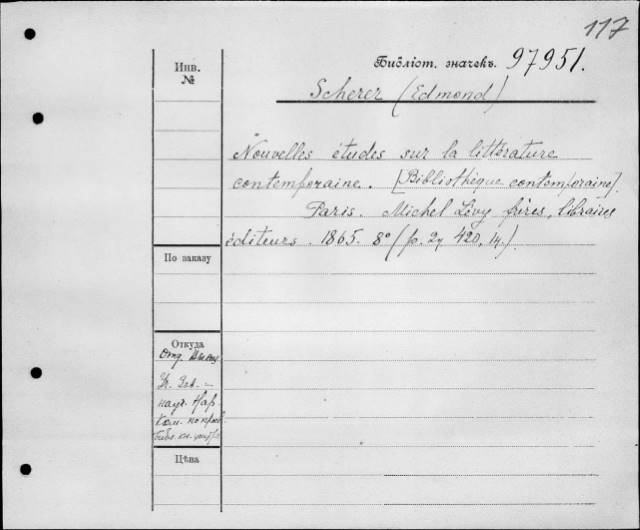 117
Библіот. значекъ. 97951.
Инв.
№
Scherer (Edmond)
Nouvelles études sur la littérature
contemporaine. [Bibliothèque contemporaine].
Paris. Michel Lévy frères, libraires
éditeurs. 1865. 8° (p. 420, 14.)
По заказу
Откуда
Отд.
науч. Нар.
Ком. по просв.
Цѣна